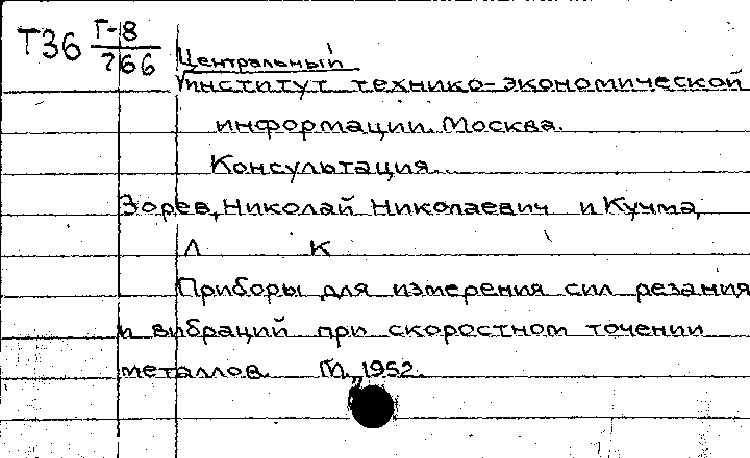 Т36 Г-8
766
Центральный
институт технико-экономической
информации. Москва.
Консультация.
Зорев, Николай Николаевич и Кучма,
Л К
Приборы для измерения сил резания
и вибраций при скоростном точении
металлов. М., 1952.